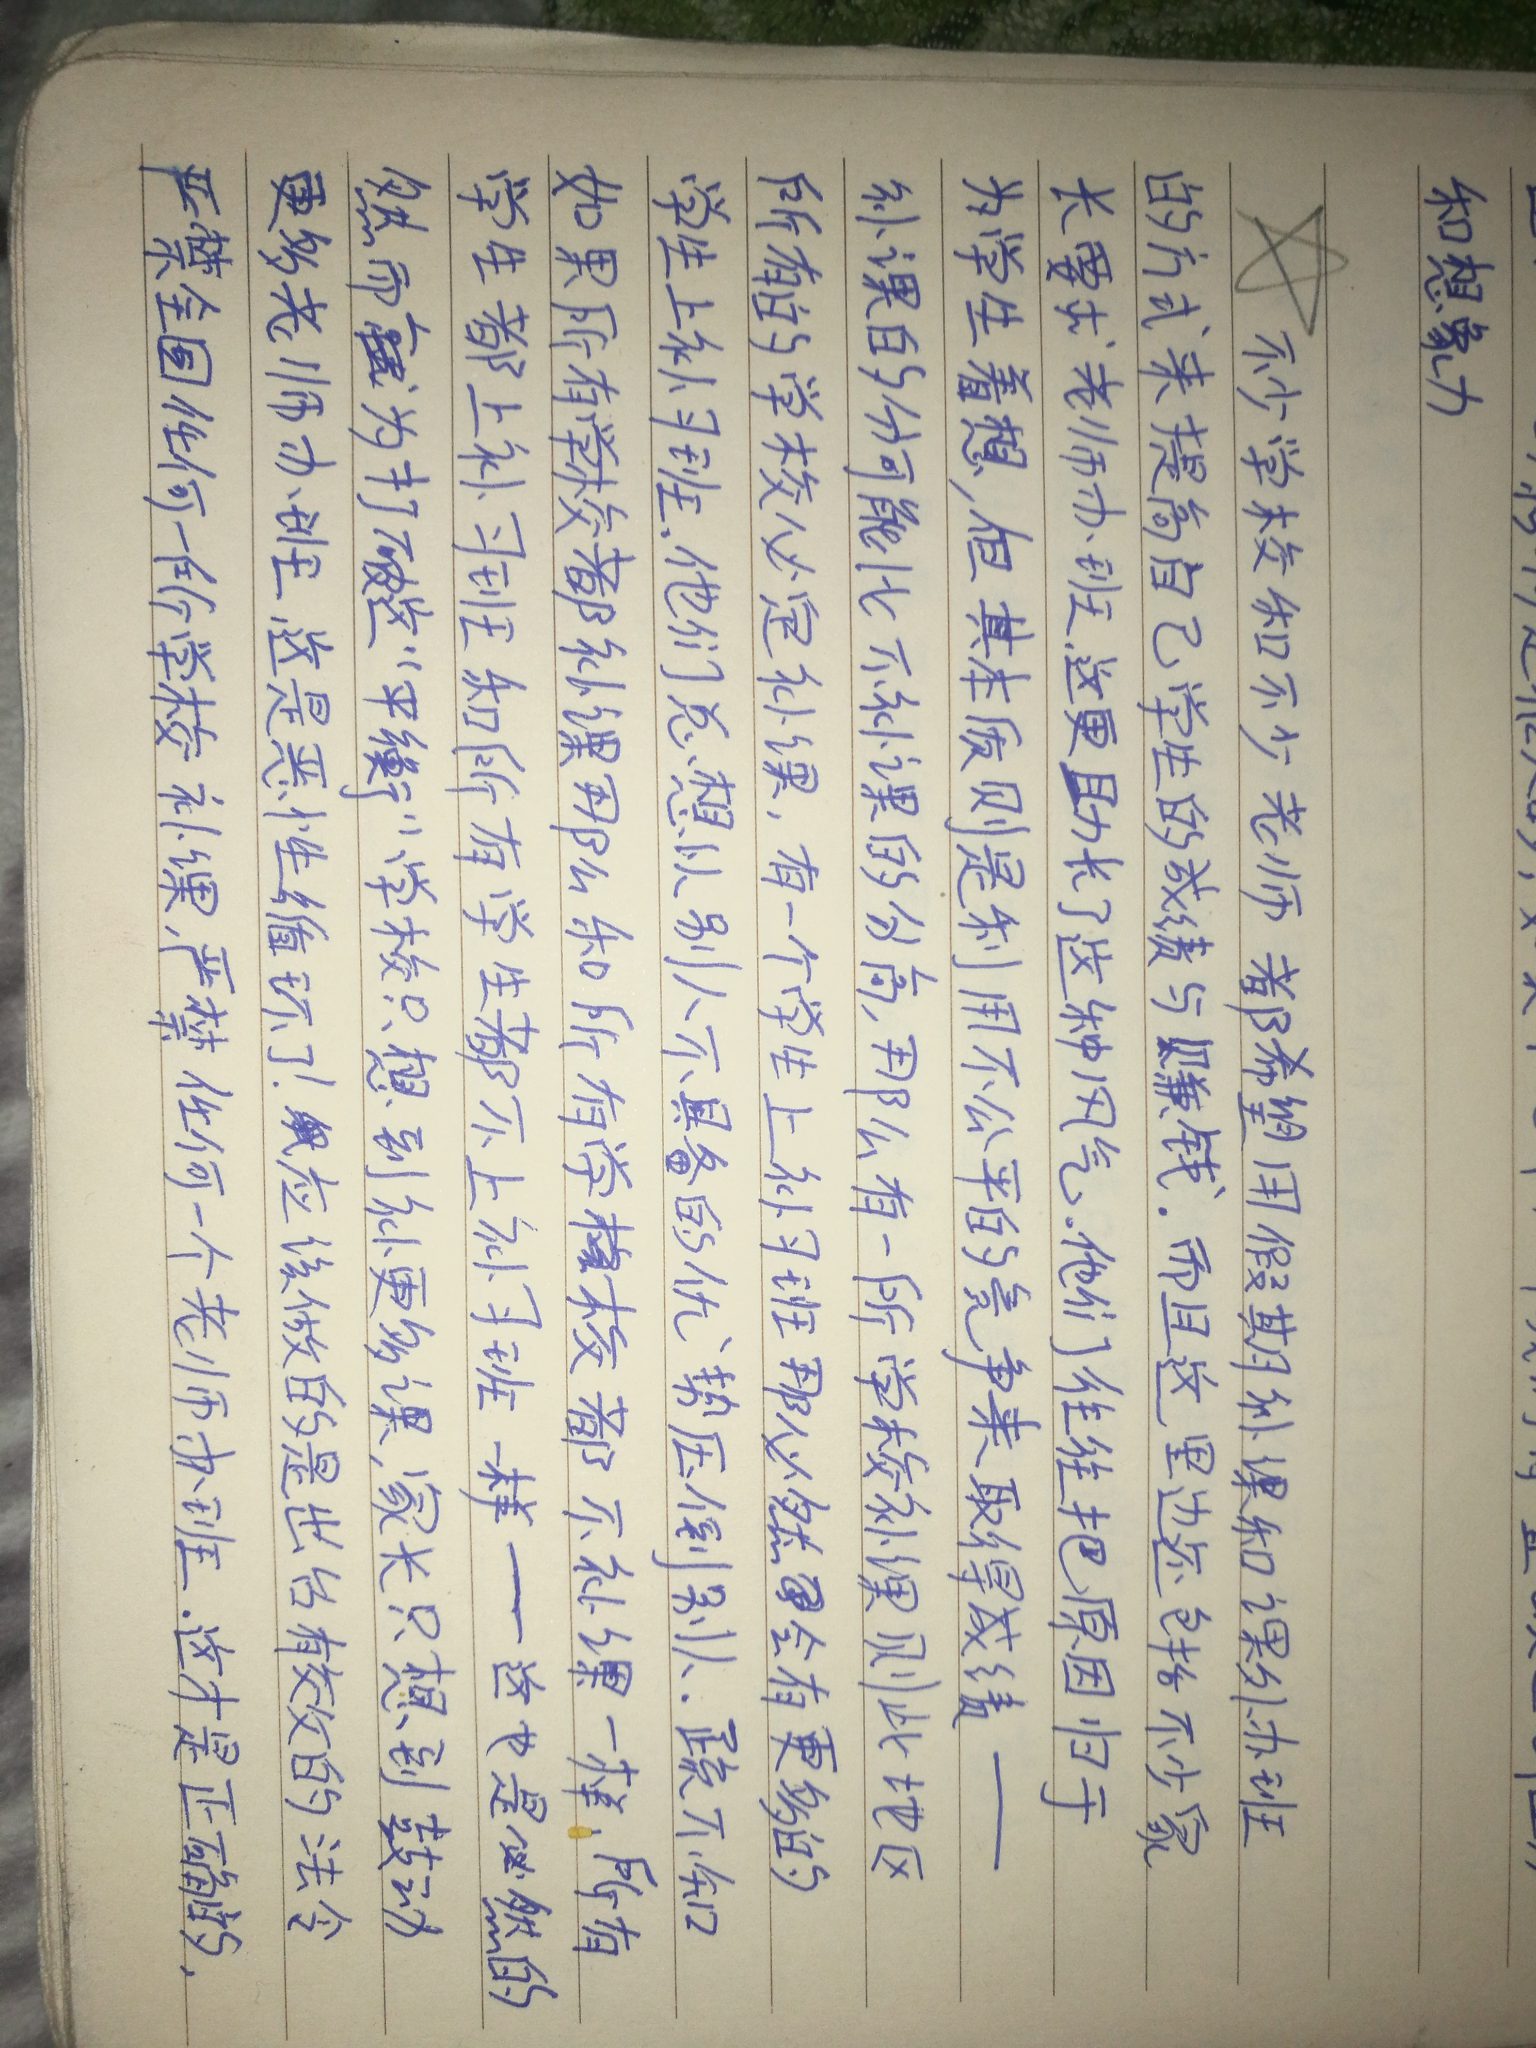 和想象力
不少学校和不少老师都希望用假期补课和课外办班
的方式来提高自己学生的成绩与赚钱.而且这里边还包括不少家
长要求老师办班.这更助长了这种风气.他们往往把原因归于
为学生着想,但其本质则是利用不公平的竞争来取得成绩——
补课的分可能比不补课的分高,那么有一所学校补课则此地区
所有的学校必定补课,有一个学生上补习班那必然会有更多的
学生上补习班.他们总想以别人不具备的优势压倒别人.殊不知
如果所有学校都补课那么和所有学校都不补课一样,所有
学生都上补习班和所有学生都不上补习班一样——这也是必然的
然而为打破这"平衡"学校只想到补更多课,家长只想到鼓动
更多老师办班.这是恶性循环了!应该做的是出台有效的法令
严禁全国任何一所学校补课,严禁任何一个老师办班.这才是正确的,